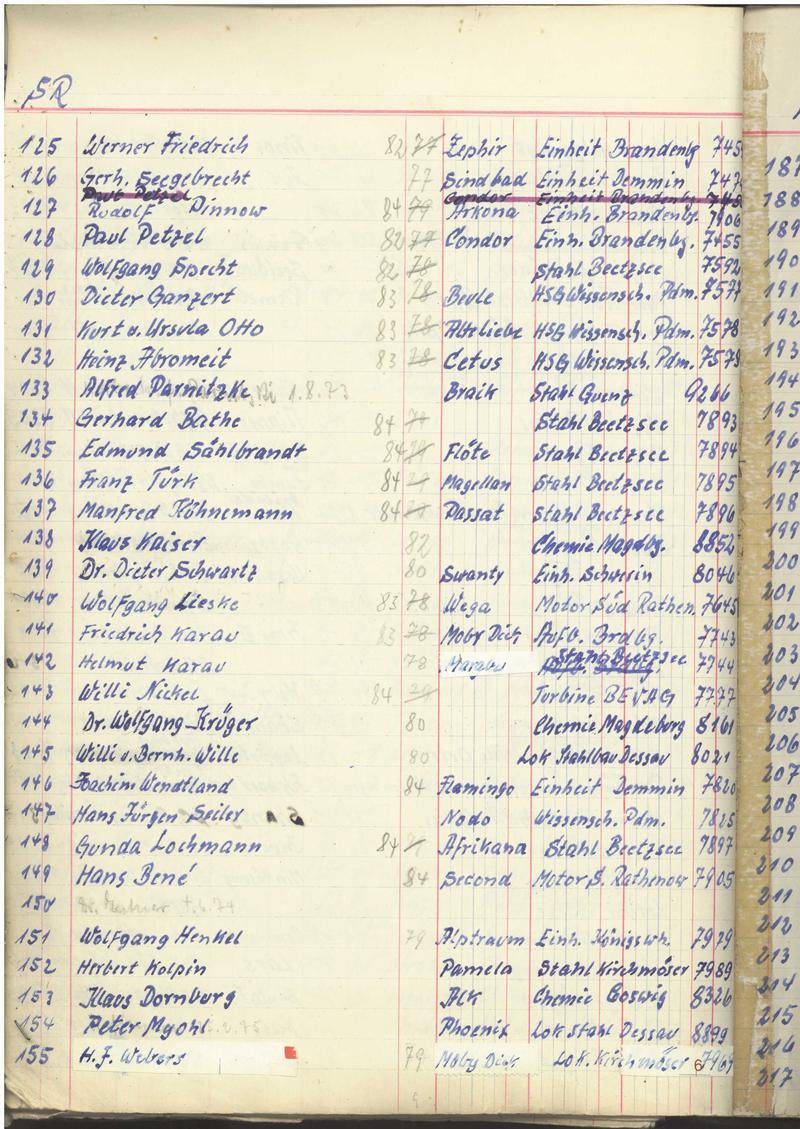 SR
125 Werner Friedrich 82 77 Zephir Einheit Brandenbg 745
126 Gerh. Seegebrecht 77 Sindbad Einheit Demmin 747
Paul Petzel Condor Einheit Brandenbg. 745
127 Rudolf Pinnow 84 79 Arkona Einh. Brandenbg. 7906
128 Paul Petzel 82 79 Condor Einh. Brandenbg. 7455
129 Wolfgang Specht 82 78 Stahl Beetzsee 7592
130 Dieter Ganzert 83 78 Beule HSG Wissensch. Pdm. 7577
131 Kurt u. Ursula Otto 83 78 Alte Liebe HSG Wissensch. Pdm. 7578
132 Heinz Abromeit 83 78 Cetus HSG Wissensch. Pdm. 7579
133 Alfred Parnitzke 1.8.73 Braik Stahl Guenz 9266
134 Gerhard Bathe 84 79 Stahl Beetzsee 7893
135 Edmund Sählbrandt 84 79 Flöte Stahl Beetzsee 7894
136 Franz Türk 84 79 Magellan Stahl Beetzsee 7895
137 Manfred Höhnemann 84 79 Passat Stahl Beetzsee 7896
138 Klaus Kaiser 82 Chemie Magdbg. 8852
139 Dr. Dieter Schwartz 80 Swanty Einh. Schwerin 8046
140 Wolfgang Lieske 83 78 Wega Motor Süd Rathen. 7645
141 Friedrich Karau 83 78 Moby Dick Aufb. Brdbg. 7743
142 Helmut Karau 78 Marabu Stahl Beetzsee 7744
143 Willi Nickel 84 79 Turbine BEVAG 7777
144 Dr. Wolfgang Krüger 80 Chemie Magdeburg 8161
145 Willi u. Bernh. Wille 80 Lok Stahlbau Dessau 8021
146 Joachim Wendtland 84 Flamingo Einheit Demmin 7820
147 Hans Jürgen Seiler Nodo Wissensch. Pdm. 7825
148 Gunda Lochmann 84 79 Afrikana Stahl Beetzsee 7897
149 Hans Bené 84 Second Motor S. Rathenow 7905
150 Dr.
151 Wolfgang Henkel 79 Alptraum Einh. Königswh. 7979
152 Herbert Kolpin Pamela Stahl Kirchmöser 7989
153 Klaus Dornburg Alk Chemie Coswig 8326
154 Peter Myohl Phoenix Lok Stahl Dessau 8899
155 H.J. Webers 79 Moby Dick Lok. Kirchmöser 7969
187
188
189
190
191
192
193
194
195
196
197
198
199
200
201
202
203
204
205
206
207
208
209
210
211
212
213
214
215
216
217